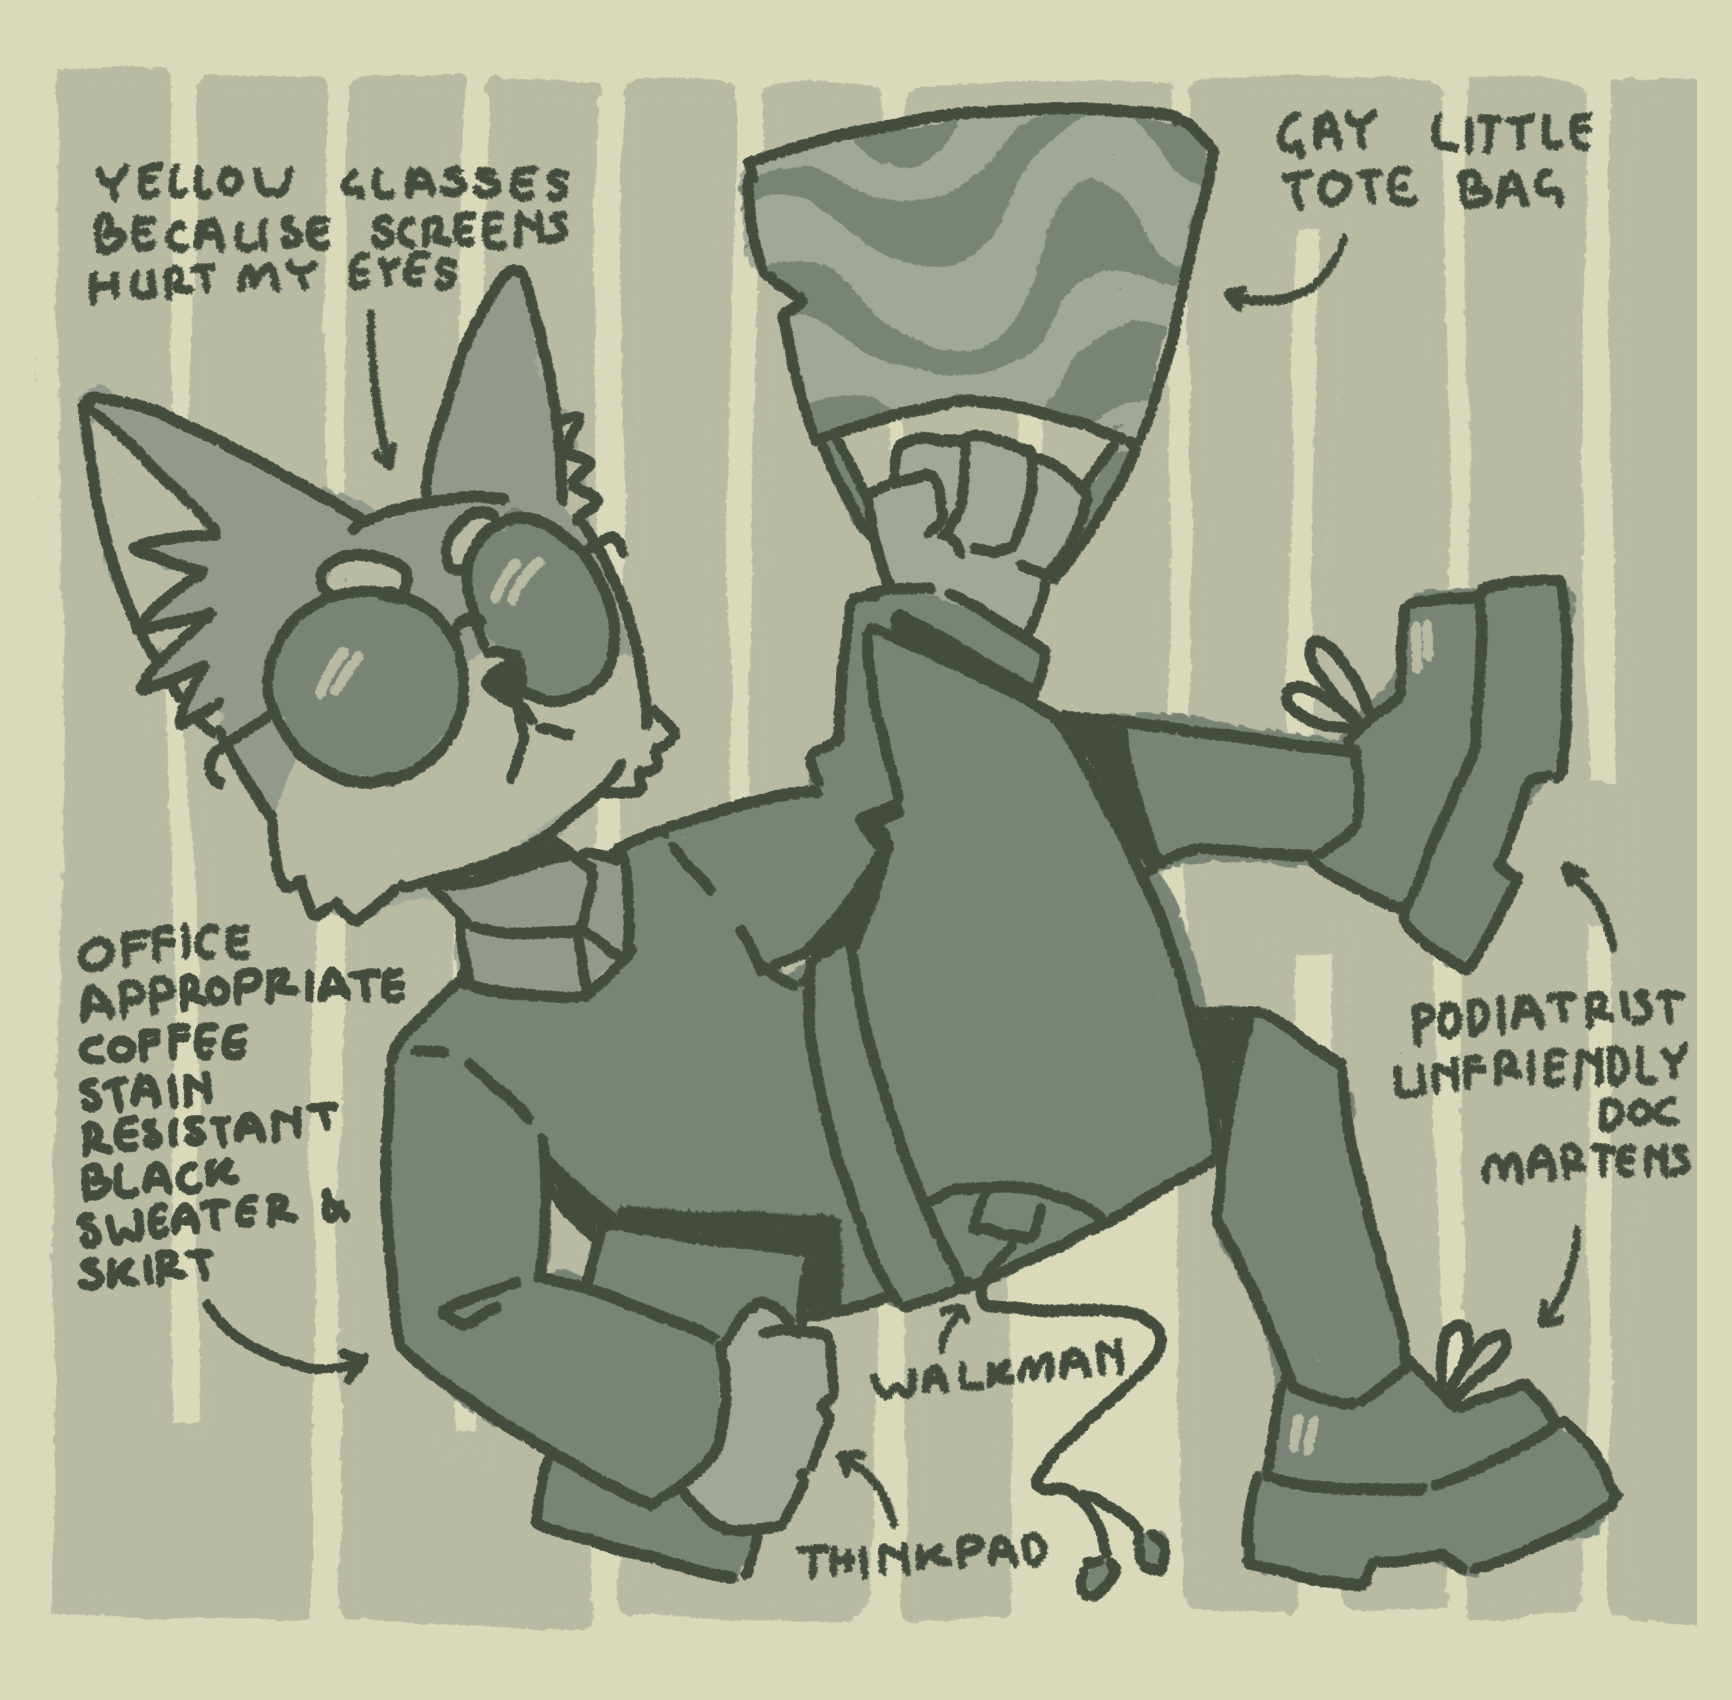 YELLOW GLASSES
BECAUSE SCREENS
HURT MY EYES
GAY LITTLE
TOTE BAG
OFFICE
APPROPRIATE
COFFEE
STAIN
RESISTANT
BLACK
SWEATER &
SKIRT
PODIATRIST
UNFRIENDLY
DOC
MARTENS
WALKMAN
THINKPAD